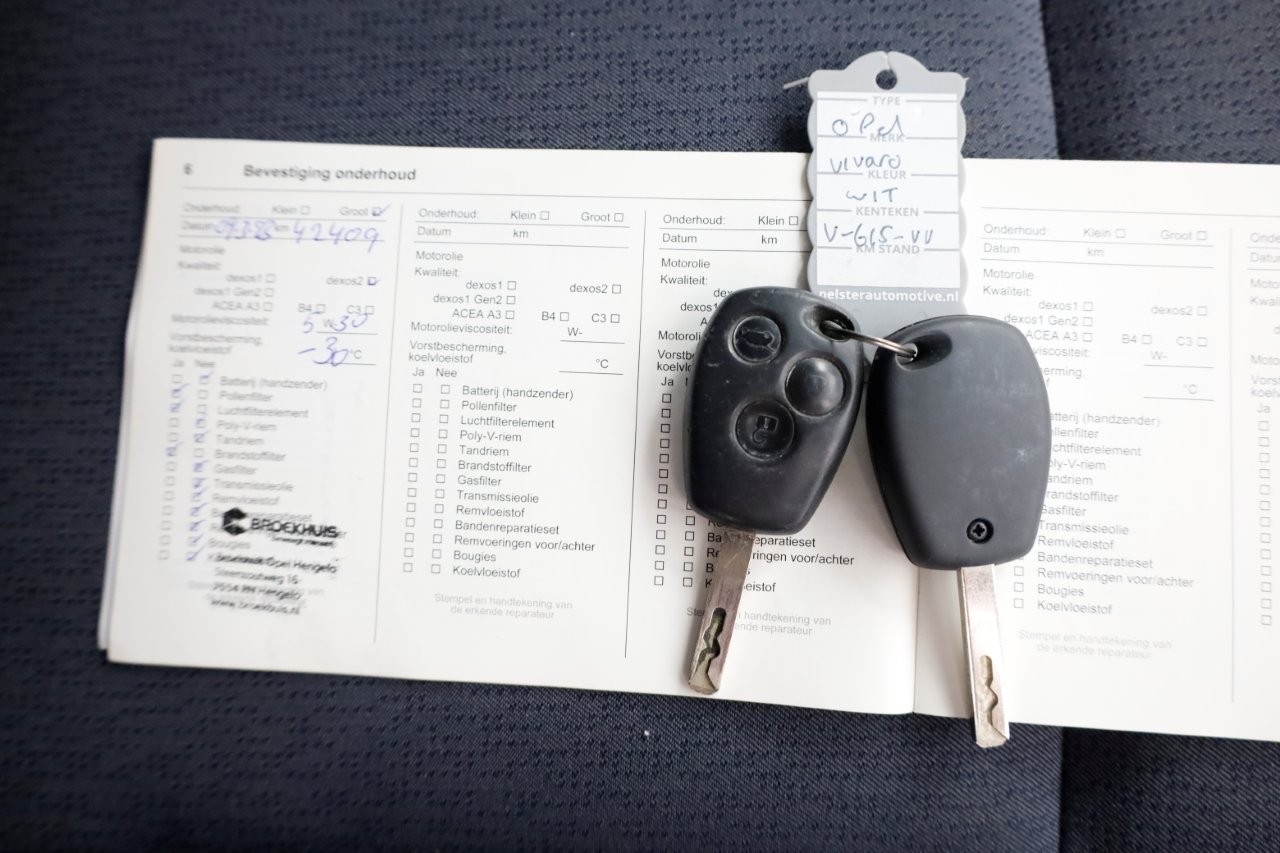 6 Bevestiging onderhoud
Onderhoud: Klein ☐ Groot ☑
Datum km 42409
Motorolie
Kwaliteit:
dexos1 ☐ dexos2 ☑
dexos1 Gen2 ☐
ACEA A3 ☐ B4 ☐ C3 ☐
Motorolieviscositeit: 5 W-30
Vorstbescherming,
koelvloeistof -30 °C
Ja Nee
Batterij (handzender)
Pollenfilter
Luchtfilterelement
Poly-V-riem
Tandriem
Brandstoffilter
Gasfilter
Transmissieolie
Remvloeistof
BROEKHUIS
Bougies
Broekhuis Opel Hengelo
www.broekhuis.nl
Onderhoud: Klein ☐ Groot ☐
Datum km
Motorolie
Kwaliteit:
dexos1 ☐ dexos2 ☐
dexos1 Gen2 ☐
ACEA A3 ☐ B4 ☐ C3 ☐
Motorolieviscositeit: W-
Vorstbescherming,
koelvloeistof °C
Ja Nee
☐ ☐ Batterij (handzender)
☐ ☐ Pollenfilter
☐ ☐ Luchtfilterelement
☐ ☐ Poly-V-riem
☐ ☐ Tandriem
☐ ☐ Brandstoffilter
☐ ☐ Gasfilter
☐ ☐ Transmissieolie
☐ ☐ Remvloeistof
☐ ☐ Bandenreparatieset
☐ ☐ Remvoeringen voor/achter
☐ ☐ Bougies
☐ ☐ Koelvloeistof
Stempel en handtekening van
de erkende reparateur
Onderhoud: Klein ☐
Datum km
Motorolie
Kwaliteit:
Ja
paratieset
eringen voor/achter
eistof
handtekening van
ende reparateur
TYPE
Opel
MERK
Vivaro
KLEUR
WIT
KENTEKEN
V-615-VV
KM STAND
nelsterautomotive.nl
Onderhoud: Klein ☐ Groot ☐
Datum km
Motorolie
Kwaliteit:
dexos1 ☐ dexos2 ☐
dexos1 Gen2 ☐
ACEA A3 ☐ B4 ☐ C3 ☐
viscositeit: W-
erming,
°C
atterij (handzender)
ollenfilter
chtfilterelement
oly-V-riem
andriem
randstoffilter
Gasfilter
Transmissieolie
Remvloeistof
Bandenreparatieset
☐ Remvoeringen voor/achter
☐ Bougies
☐ Koelvloeistof
Stempel en handtekening van
de erkende reparateur
Onde
Datu
Moto
Kwal
Ja